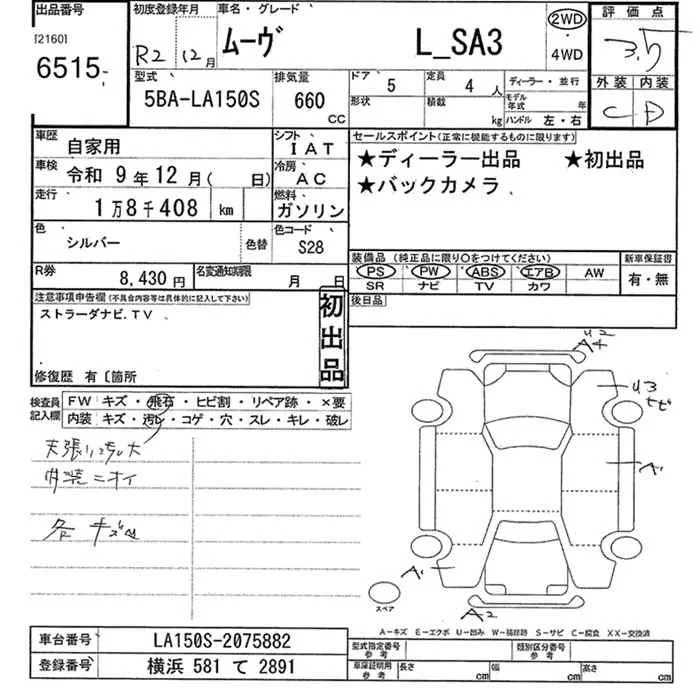 出品番号
[2160]
6515
初度登録年月
R2 12月
車名・グレード
ムーヴ L_SA3
2WD
4WD
評価点
3.5
外装 内装
C D
型式
5BA-LA150S
排気量
660 CC
ドア 5
形状
定員 4 人
積載 kg
ディーラー・並行
モデル年式 年
ハンドル 左・右
車歴 自家用
シフト IAT
車検 令和 9年12月( 日)
冷房 AC
走行 1万8千408 km
燃料 ガソリン
色 シルバー 色替
色コード S28
R券 8,430円
名変通知期限 月 日
セールスポイント(正常に機能するものに限ります)
★ディーラー出品 ★初出品
★バックカメラ
装備品(純正品に限り○をつけてください)
PS PW ABS エアB AW
SR ナビ TV カワ
新車保証書
有・無
後日品
注意事項申告欄(不具合内容等は具体的に記入して下さい)
ストラーダナビ.TV
初出品
修復歴 有〔箇所
検査員記入欄
FW キズ・飛石・ヒビ割・リペア跡・×要
内装 キズ・汚レ・コゲ・穴・スレ・キレ・破レ
天張りに汚レ大
内装ニオイ
各 キズ
U2
A4
U3
A
A
A2
スペア
A−キズ E−エクボ U−凹み W−補修跡 S−サビ C−腐食 XX−交換済
車台番号 LA150S-2075882
登録番号 横浜 581 て 2891
型式指定番号 参考
類別区分番号 参考
車庫証明用 参考
長さ cm
幅 cm
高さ cm